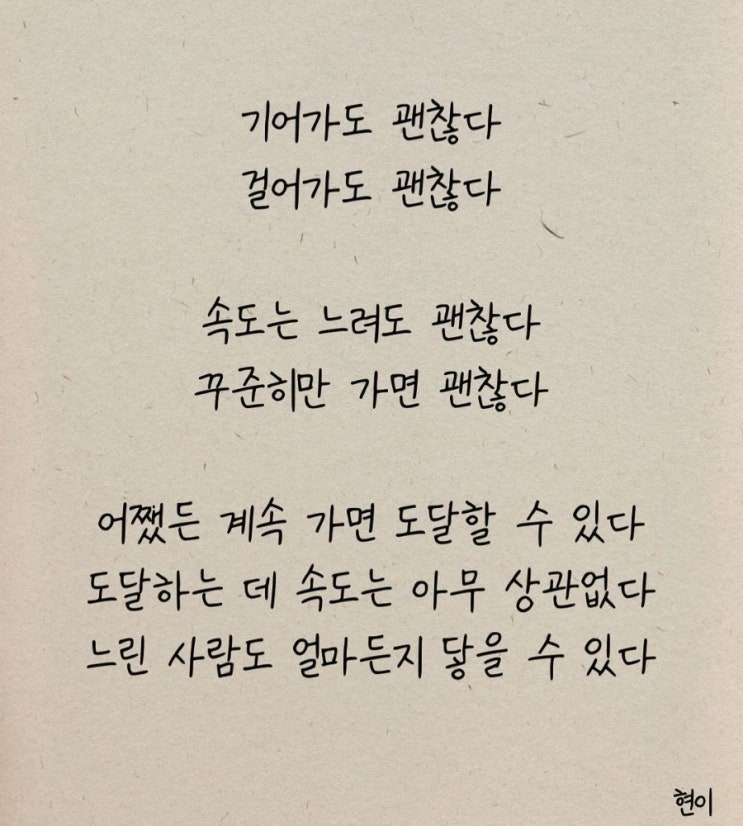 기어가도 괜찮다
걸어가도 괜찮다
속도는 느려도 괜찮다
꾸준히만 가면 괜찮다
어쨌든 계속 가면 도달할 수 있다
도달하는 데 속도는 아무 상관없다
느린 사람도 얼마든지 닿을 수 있다
현이